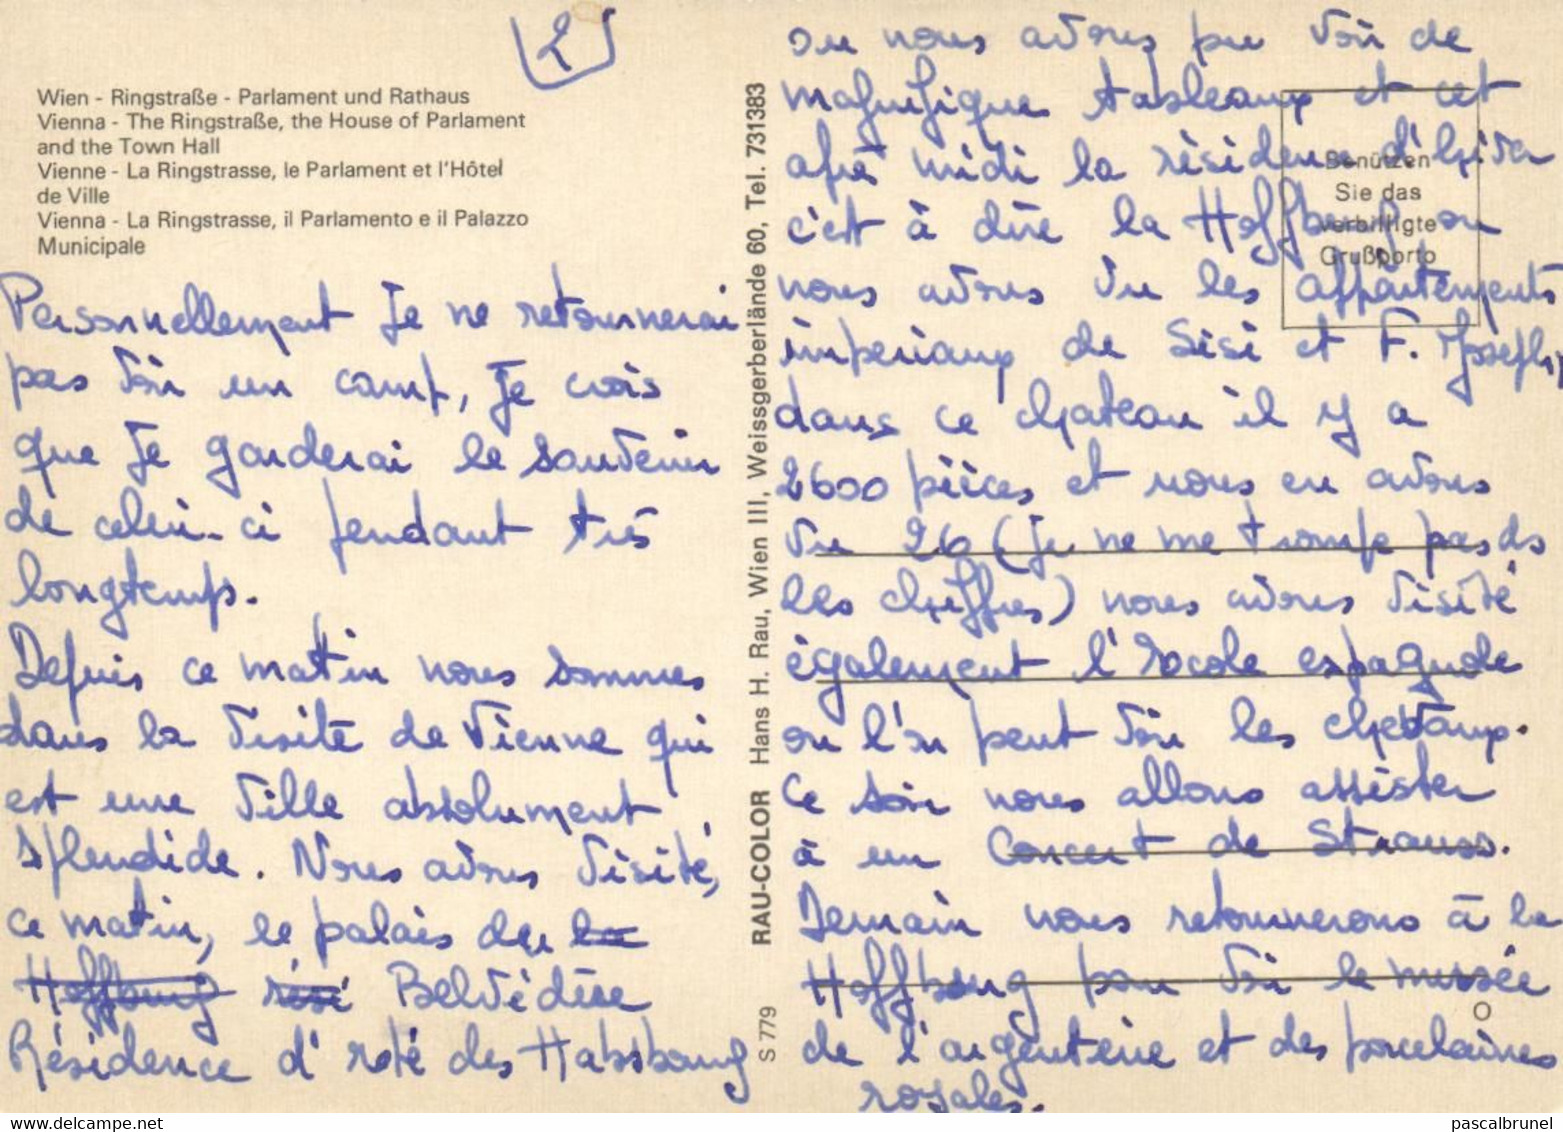 2
Wien - Ringstraße - Parlament und Rathaus
Vienna - The Ringstraße, the House of Parlament
and the Town Hall
Vienne - La Ringstrasse, le Parlament et l'Hôtel
de Ville
Vienna - La Ringstrasse, il Parlamento e il Palazzo
Municipale
Personnellement je ne retournerai
pas voir un camp, je crois
que je garderai le souvenir
de celui-ci pendant très
longtemps.
Depuis ce matin nous sommes
dans la visite de Vienne qui
est une ville absolument
splendide. Nous avons visité,
ce matin, le palais du la
Hoffbourg rési Belvédère
Résidence d'été des Habsbourg
RAU-COLOR Hans H. Rau, Wien III, Weissgerberlände 60, Tel. 731383
S 779
ou nous avons pu voir de
magnifique tableaux et cet
après midi la résidence d'hiver
c'est à dire la Hoffbourg ou
nous avons vu les appartements
imperiaux de Sisi et F. Joseph,
dans ce chateau il y a
2600 pièces et nous en avons
vu 26 (je ne me trompe pas ds
les chiffres) nous avons visité
également l'école espagnole
ou l'on peut voir les chevaux.
Ce soir nous allons assister
à un Concert de Strauss.
Demain nous retournerons à la
Hoffbourg pour voir le musée
de l'argenterie et des porcelaines
royales.
Benützen
Sie das
verbilligte
Grußporto
O
pascalbrunel